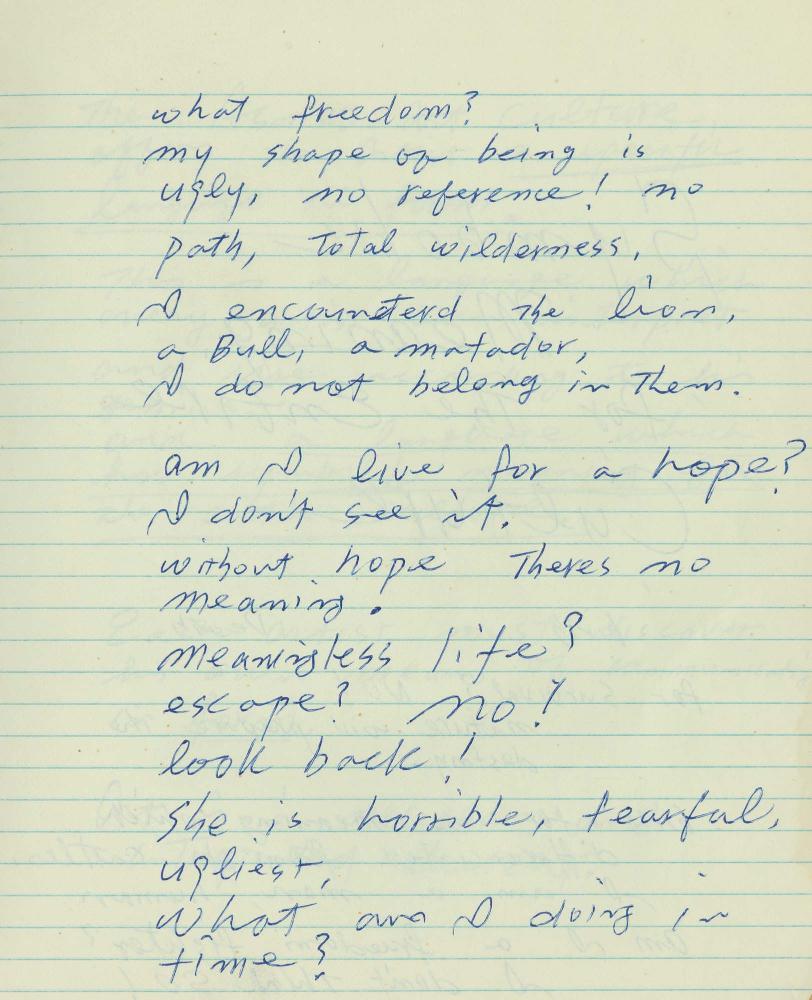 what freedom?
my shape of being is
ugly, no reference! no
path, Total wilderness,
I encounterd the lion,
a Bull, a matador,
I do not belong in Them.
am I live for a hope?
I don't see it.
without hope Theres no
meaning.
meaningless life?
escape? no!
look back!
she is horrible, fearful,
ugliest,
what am I doing in
time?